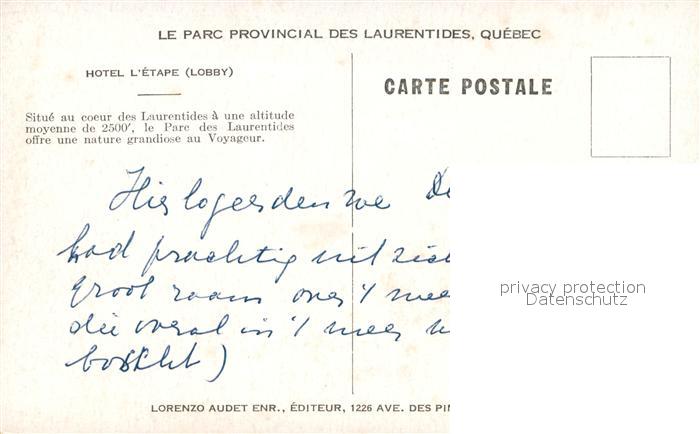 LE PARC PROVINCIAL DES LAURENTIDES, QUÉBEC
HOTEL L'ÉTAPE (LOBBY)
CARTE POSTALE
Situé au coeur des Laurentides à une altitude
moyenne de 2500', le Parc des Laurentides
offre une nature grandiose au Voyageur.
Hier logeerden we De
had prachtig uitzicht
groot raam over 't meer
die overal in 't meer
privacy protection
Datenschutz
LORENZO AUDET ENR., ÉDITEUR, 1226 AVE. DES PI